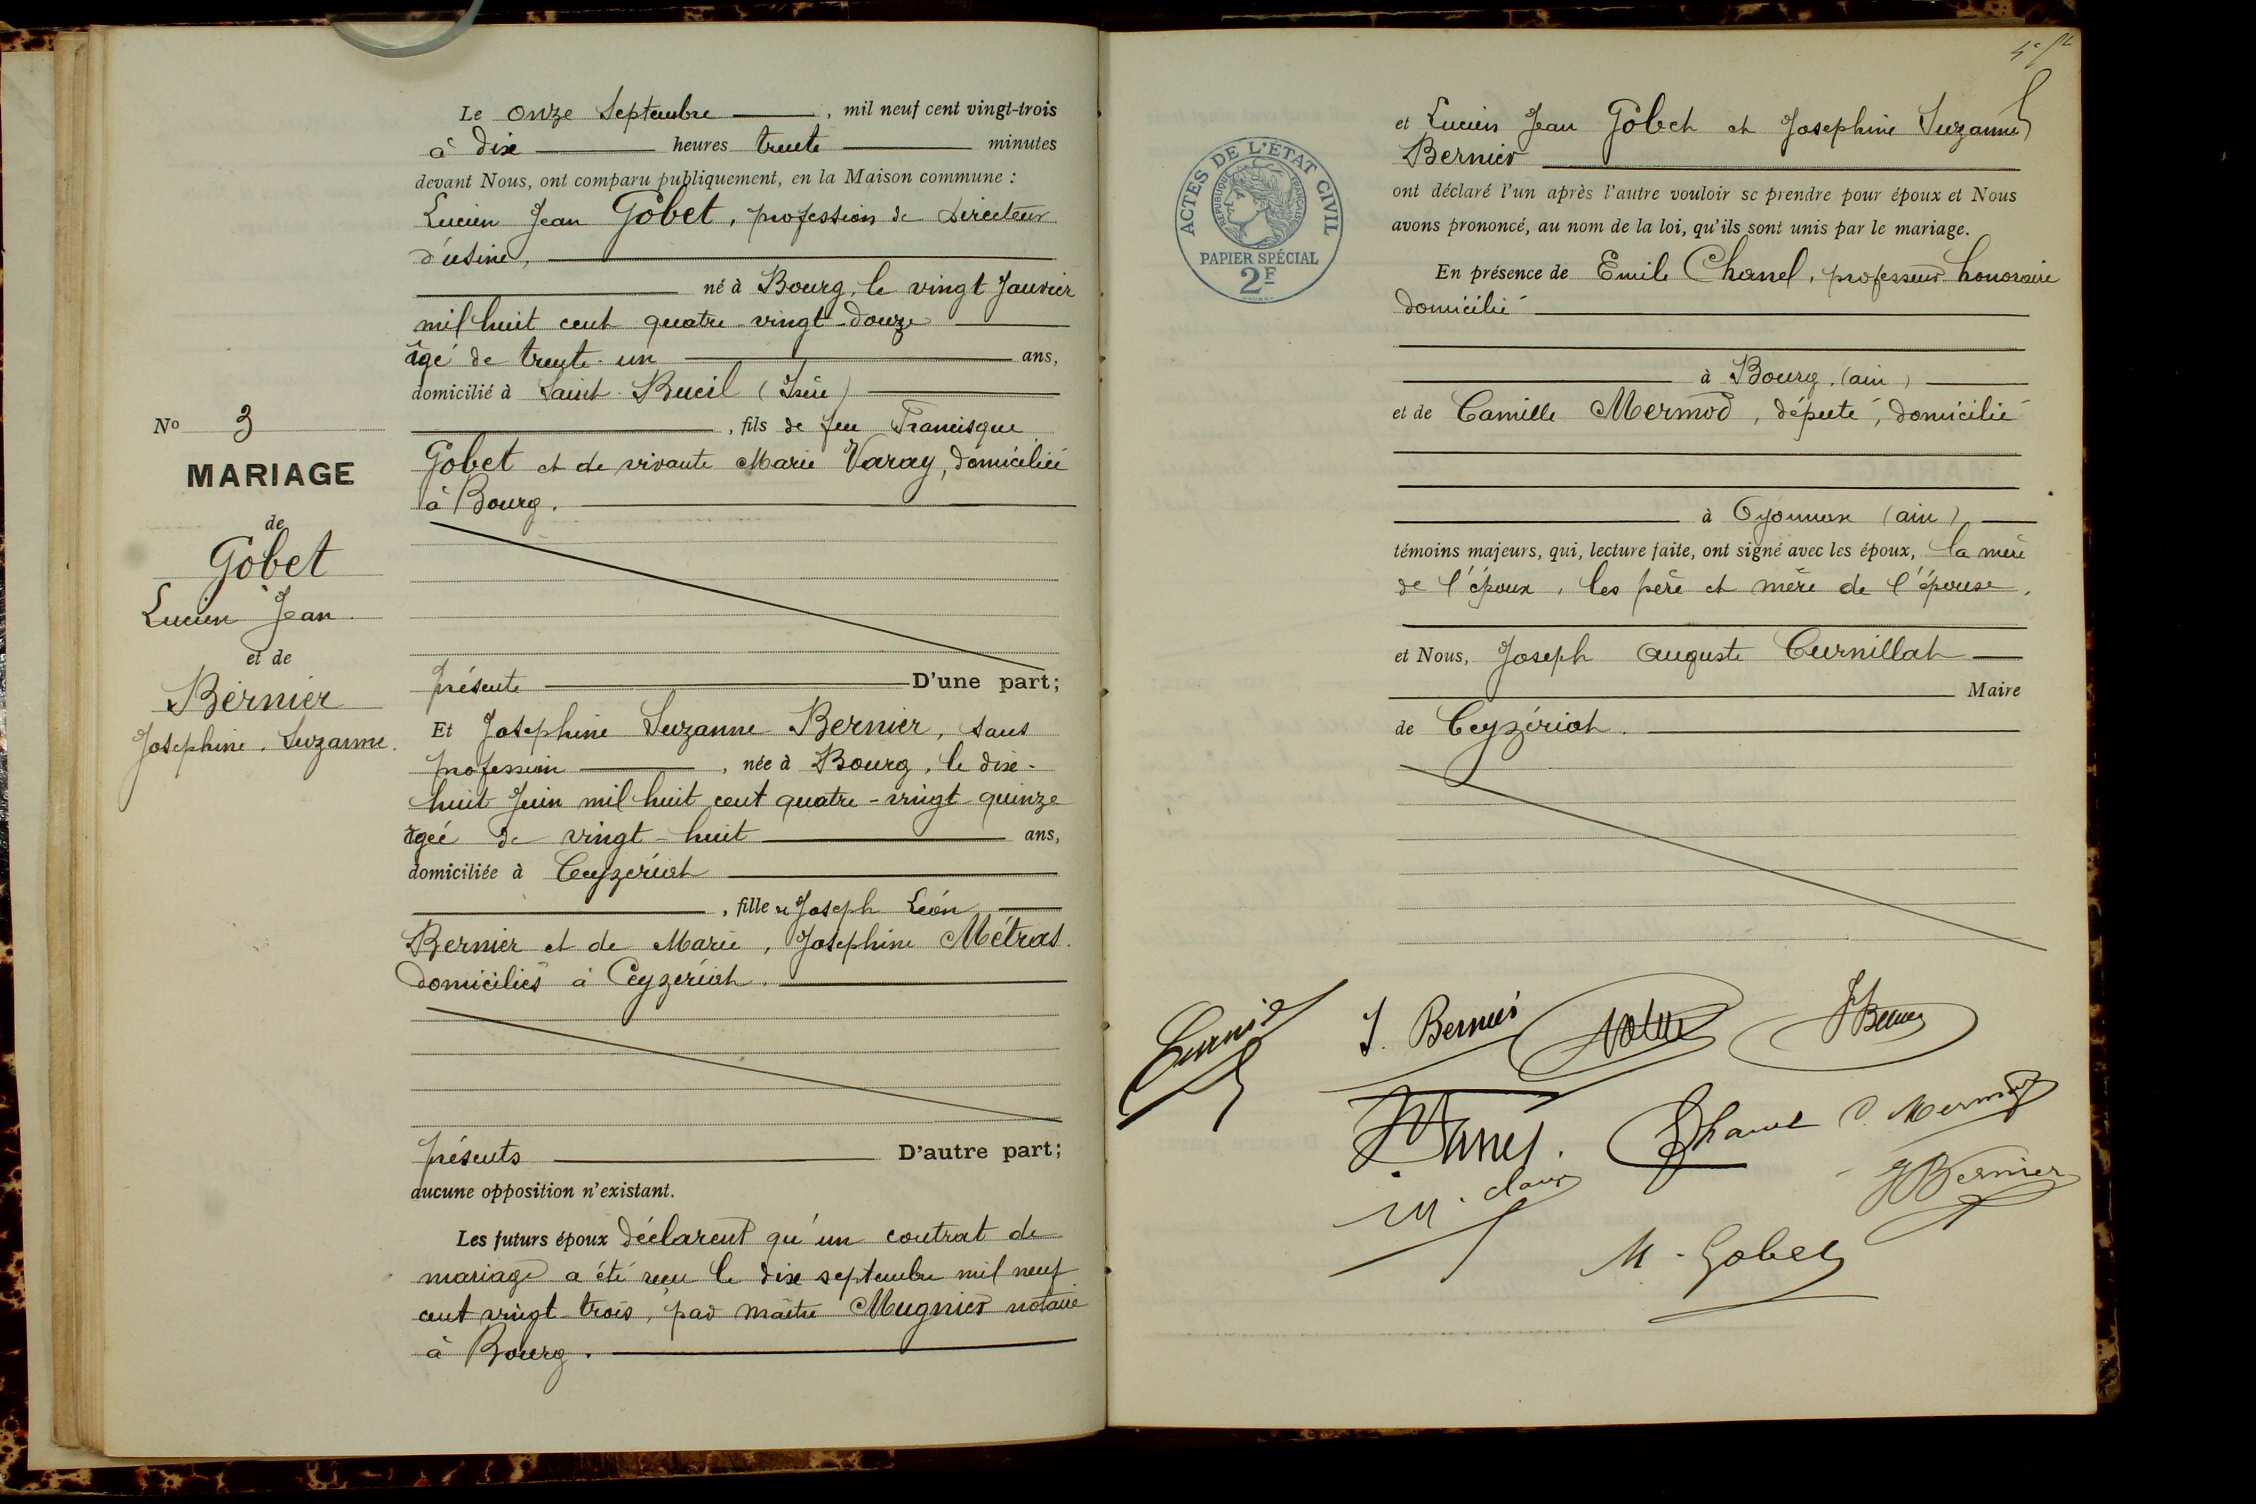 Le onze Septembre, mil neuf cent vingt-trois
à dix heures trente minutes
devant Nous, ont comparu publiquement, en la Maison commune :
Lucien Jean Gobet, profession de Directeur
d'usine,
né à Bourg, le vingt Janvier
mil huit cent quatre-vingt-douze
âgé de trente-un ans,
domicilié à Saint-Bueil (Isère)
, fils de feu Francisque
Gobet et de vivante Marie Varay, domiciliée
à Bourg.
présente D'une part;
Et Josephine Suzanne Bernier, sans
profession, née à Bourg, le dix-
huit Juin mil huit cent quatre-vingt-quinze
âgée de vingt-huit ans,
domiciliée à Ceyzériat
, fille de Joseph Léon
Bernier et de Marie, Josephine Métras.
domiciliés à Ceyzériat.
présents D'autre part;
aucune opposition n'existant.
Les futurs époux déclarent qu'un contrat de
mariage a été reçu le dix septembre mil neuf
cent vingt-trois, par maître Mugnier notaire
à Bourg.
No 3
MARIAGE
de
Gobet
Lucien Jean
et de
Bernier
Josephine. Suzanne.
ACTES DE L'ÉTAT CIVIL
RÉPUBLIQUE FRANÇAISE
PAPIER SPÉCIAL
2F
et Lucien Jean Gobet et Josephine Suzanne
Bernier
ont déclaré l'un après l'autre vouloir se prendre pour époux et Nous
avons prononcé, au nom de la loi, qu'ils sont unis par le mariage.
En présence de Emile Chanel, professeur honoraire
domicilié
à Bourg. (ain)
et de Camille Mermod, député, domicilié
à Oyonnax (ain)
témoins majeurs, qui, lecture faite, ont signé avec les époux, la mère
de l'époux, les père et mère de l'épouse.
et Nous, Joseph Auguste Curnillat
Maire
de Ceyzériat.
J. Bernier
Chanel C. Mermod
J Bernier
M. Gobet